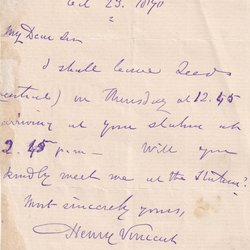 Oct 23. 1890
My Dear Sir
I shall leave Leeds
(central) on Thursday at 12.45
arriving at your station at
2.45 p.m — Will you
kindly meet me at the Station?
Most sincerely yours,
Henry Vincent